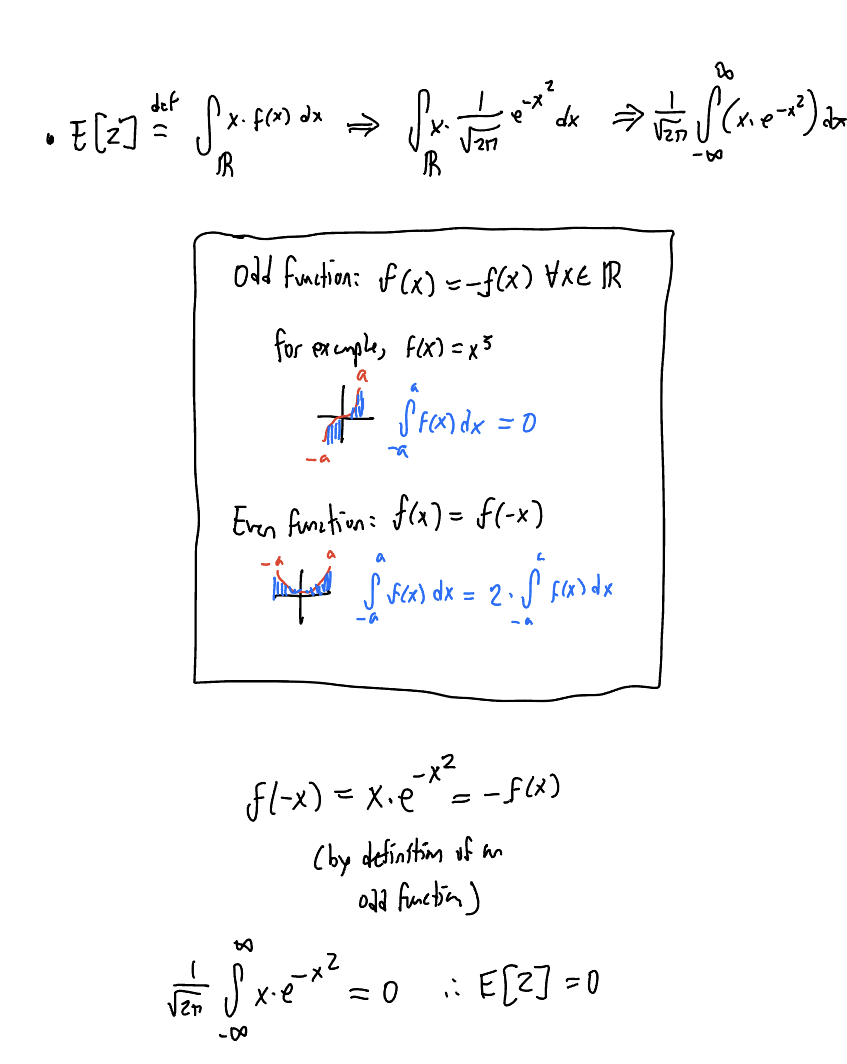 • E[Z] def= ∫_ℝ x · f(x) dx ⇒ ∫_ℝ x · 1/√2π e^-x² dx ⇒ 1/√2π ∫_-∞^∞ (x · e^-x²) dx
Odd function: f(x) = -f(x) ∀x ∈ ℝ
for example, f(x) = x³
a
-a
∫_-a^a f(x) dx = 0
Even function: f(x) = f(-x)
-a a
∫_-a^a f(x) dx = 2 · ∫_-a^a f(x) dx
f(-x) = x · e^-x² = -f(x)
(by definition of an
odd function)
1/√2π ∫_-∞^∞ x · e^-x² = 0 ∴ E[Z] = 0